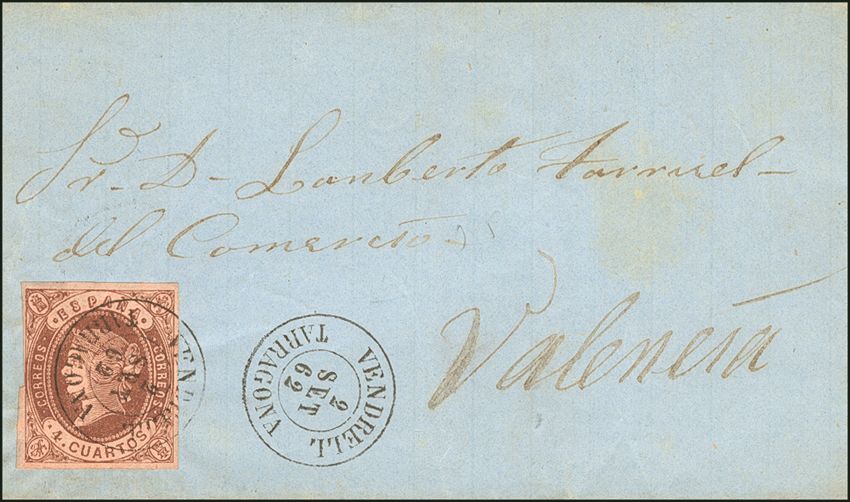 Sr. D. Lanberto Tarruel
del Comercio
Valencia
ESPAÑA
CORREOS
CORREOS
4. CUARTOS
VENDRELL
2
SET
62
TARRAGONA
VENDRELL
2
SET
62
TARRAGONA